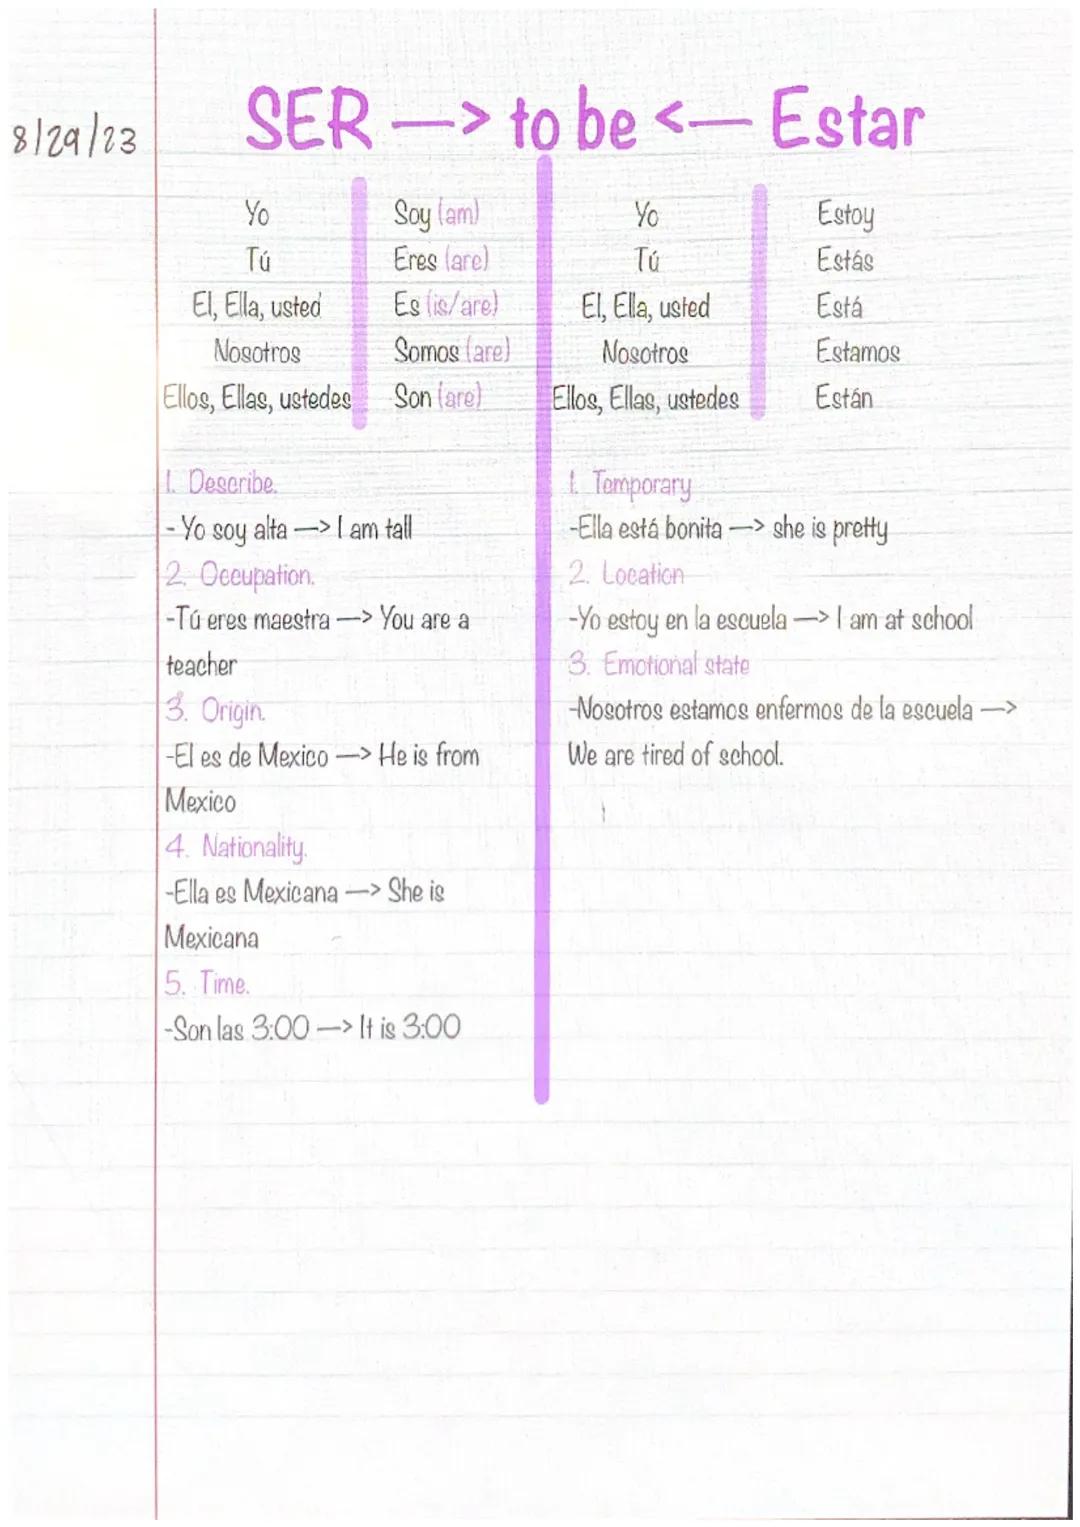 SER —> to be <— Estar
8/29/23
Yo Soy (am)
Tú Eres (are)
El, Ella, usted Es (is/are)
Nosotros Somos (are)
Ellos, Ellas, ustedes Son (are)
1. Describe.
- Yo soy alta —> I am tall
2. Occupation.
-Tú eres maestra —> You are a
teacher
3. Origin.
-El es de Mexico —> He is from
Mexico
4. Nationality.
-Ella es Mexicana —> She is
Mexicana
5. Time.
-Son las 3:00 —> It is 3:00
Yo Estoy
Tú Estás
El, Ella, usted Está
Nosotros Estamos
Ellos, Ellas, ustedes Están
1. Temporary
-Ella está bonita —> she is pretty
2. Location
-Yo estoy en la escuela —> I am at school
3. Emotional state
-Nosotros estamos enfermos de la escuela —>
We are tired of school.